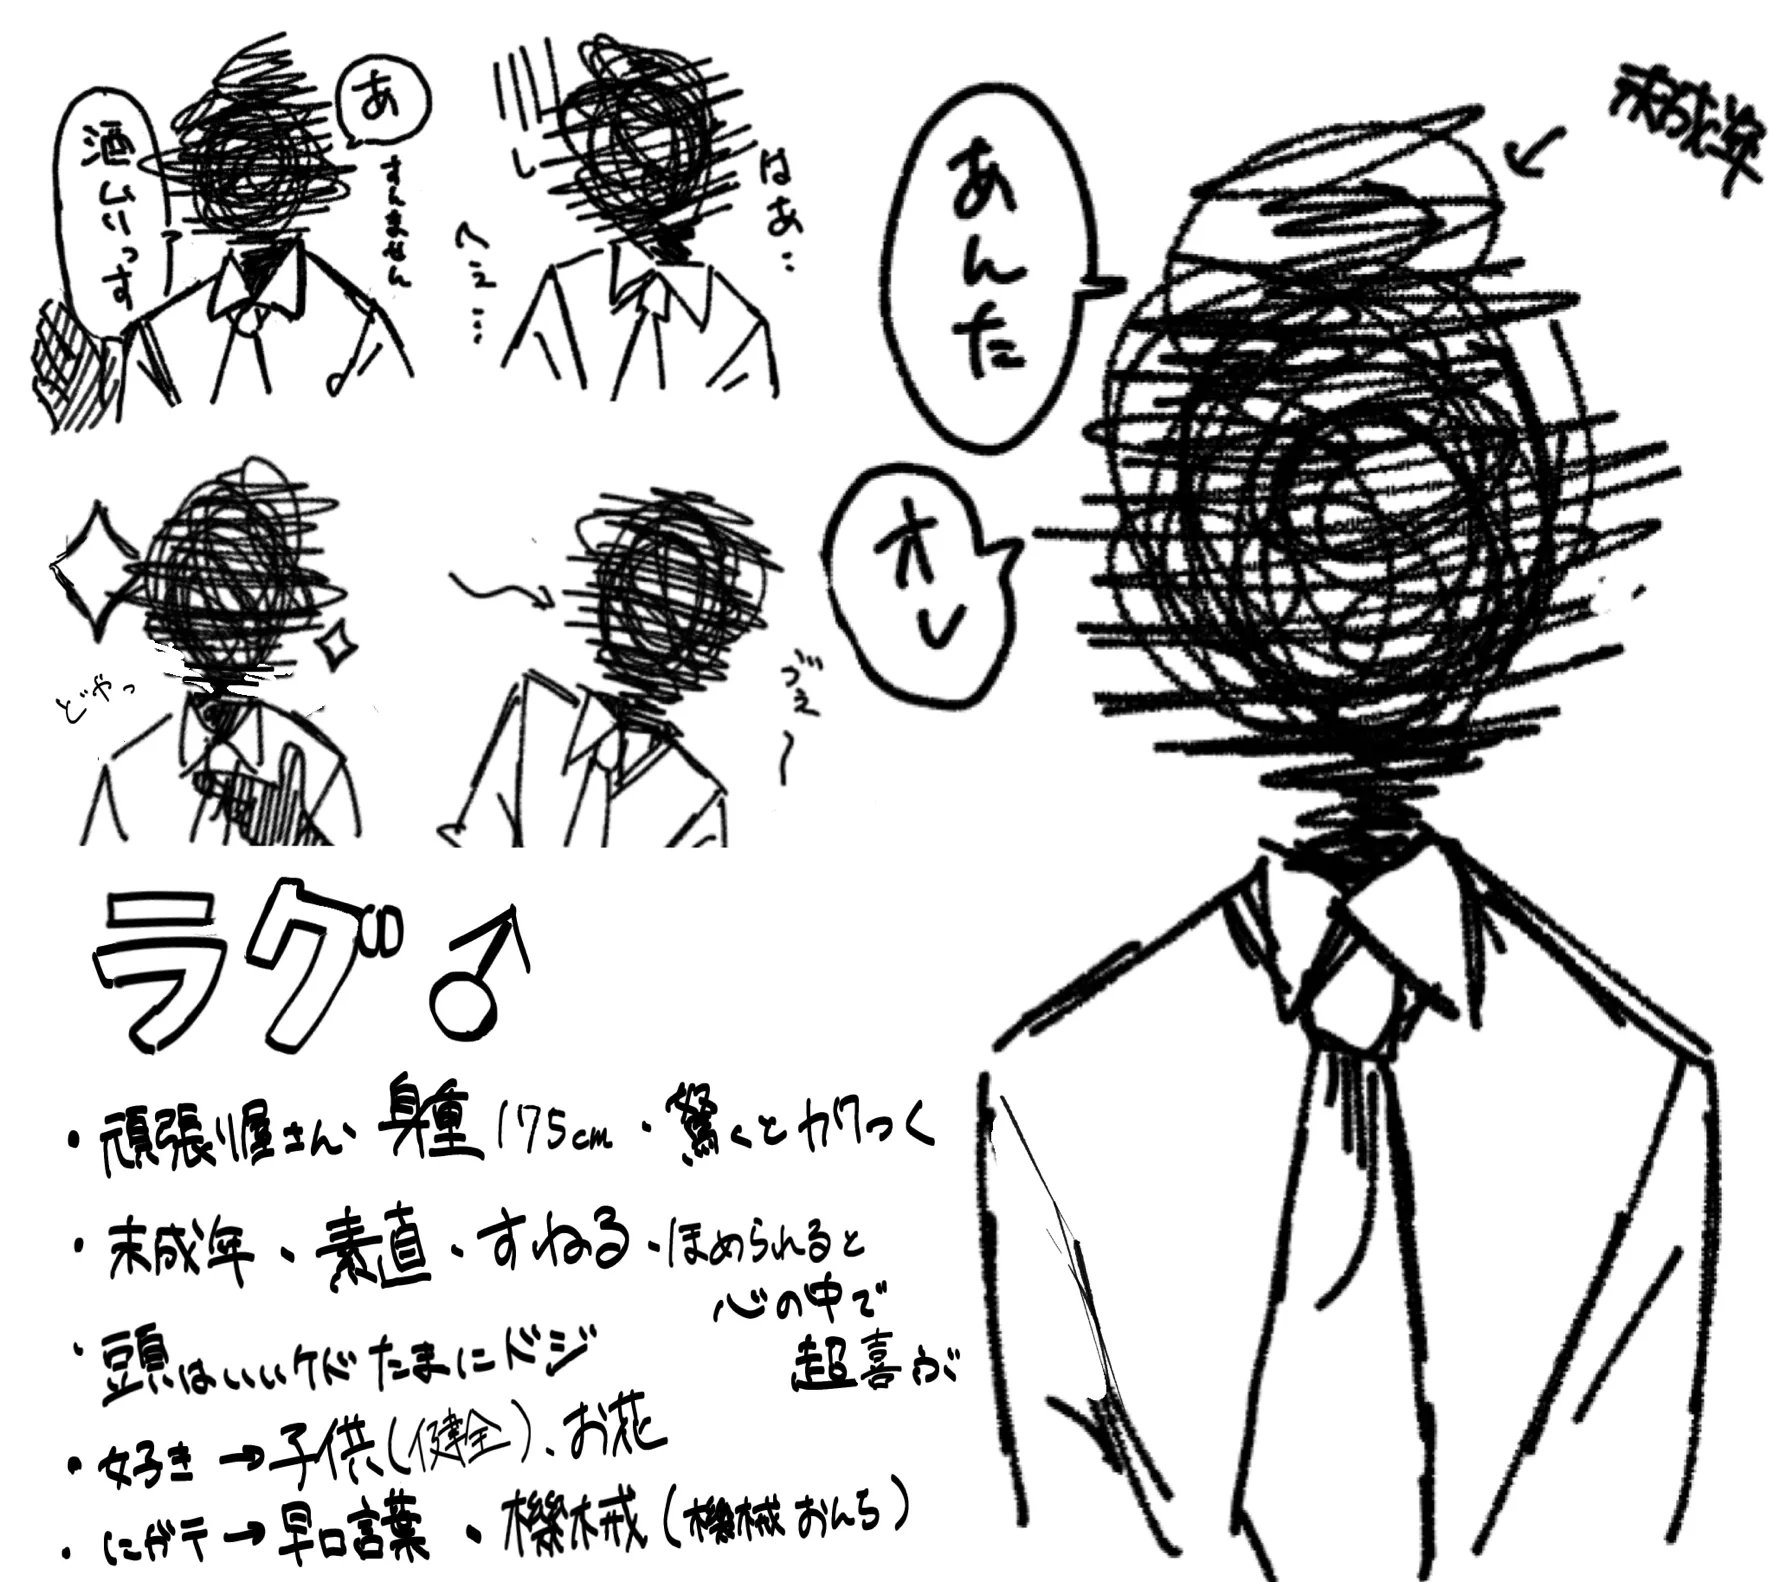 あ
すんません
酒ムリっす
はあ…
へぇ…
未成年
あんた
オレ
どやっ
づえ〜
ラグ♂
・頑張り屋さん・身重175cm・驚くとカワつく
・未成年・素直・すねる・ほめられると
心の中で
超喜ぶ
・頭はいいケドたまにドジ
・好き→子供(健全)、お花
・にガテ→早口言葉・機械(機械おんち)